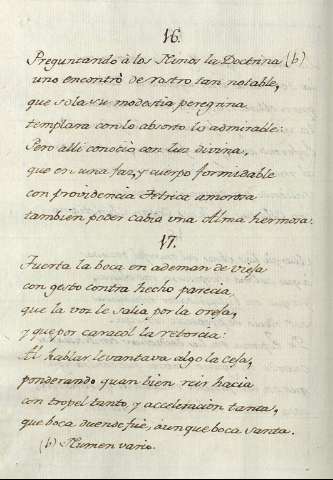 16.
Preguntando à los Ninos la Doctrina (b)
uno encontrò de rostro tan notable,
que sola su modestia peregrina
templara con lo absorto lo admirable:
Pero alli conociò con luz divina,
que en una faz, y cuerpo formidable
con providencia Tetrica amorosa
tambien poder cabia vna Alma hermosa.
17.
Tuerta la boca en ademan de viesa
con gesto contra hecho parecia,
que la voz le salia por la oresa,
y que por caracol la retorcia:
Al hablar levantava algo la cesa,
ponderando quan bien reir hacia
con tropel tanto, y acceleracion tanta,
que boca duende fuè, aunque boca santa.
(b) Numen vario.